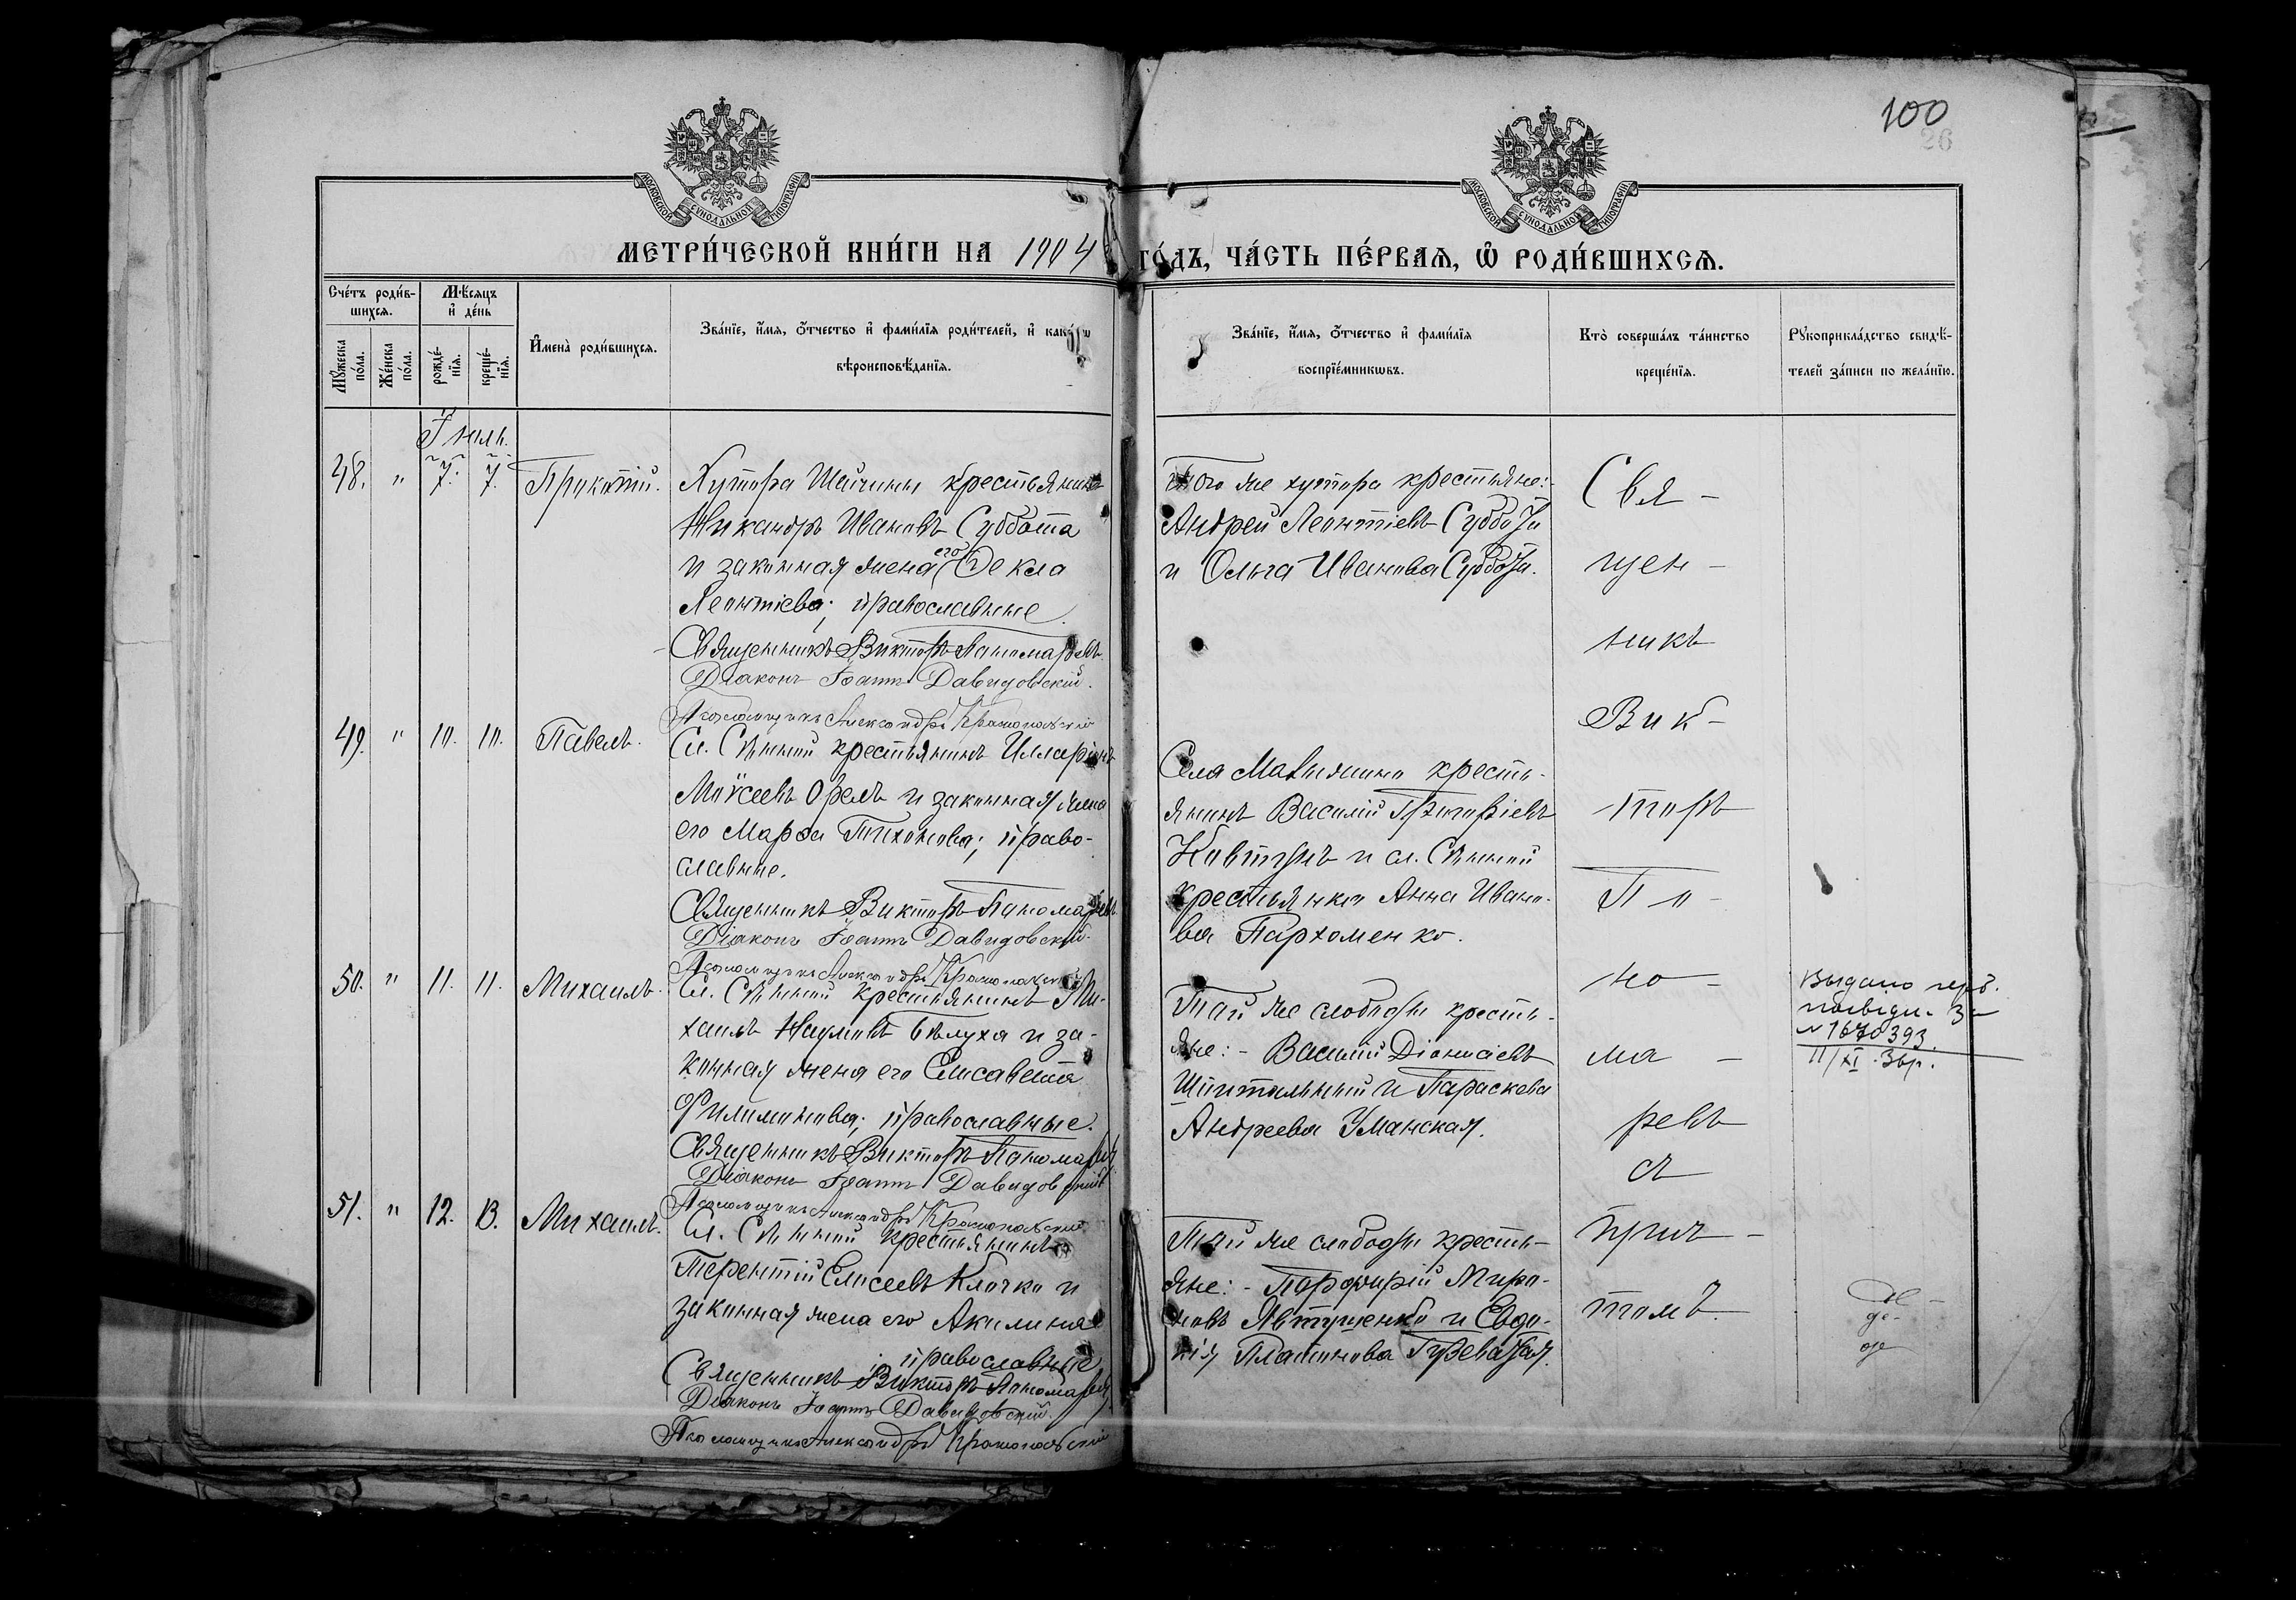 100
26
МОСКОВСКОЙ СѴНОДАЛЬНОЙ ТИПОГРАФІИ
МОСКОВСКОЙ СѴНОДАЛЬНОЙ ТИПОГРАФІИ
МЕТРИ́ЧЕСКОЙ КНИ́ГИ НА 1904
ГО́ДЪ, ЧА́СТЬ ПЕ́РВАѦ, Ѽ РОДИ́ВШИХСѦ.
Сче́тъ роди́в-
шихсѧ.
Мꙋ́жеска по́ла.
Же́нска по́ла.
Мѣ́сѧцъ
и҆ де́нь
рожде́-
нїѧ.
креще́-
нїѧ.
И҆мена̀ роди́вшихсѧ.
Зва́нїе, и҆́мѧ, ѻ҆́тчество и҆ фами́лїѧ роди́телей, и҆
вѣроисповѣ́данїѧ.
Зва́нїе, и҆́мѧ, ѻ҆́тчество и҆ фами́лїѧ
воспрїе́мникѡвъ.
Кто̀ соверша́лъ та́инство
креще́нїѧ.
Рꙋкоприкла́дство свидѣ́-
телей за́писи по жела́нїю.
Іюль.
48. " 7. 7.
Хутора крестьянинъ
Никандръ Ивановъ Суббота
и законная жена его Ѳекла
Леонтіева; православные.
Священникъ Викторъ Пономаревъ
Діаконъ Іоаннъ Давидовскій.
Псаломщикъ Александръ
Того же хутора крестьяне:
Андрей Леонтіевъ Суббота
и Ольга Иванова Суббота.
49. " 10. 10. Павелъ.
Сл. Сѣнной крестьянинъ Илларіонъ
Моѵсеевъ Орелъ и законная жена
его Марѳа Тихонова; право-
славные.
Священникъ Викторъ Пономаревъ
Діаконъ Іоаннъ Давидовскій.
Псаломщикъ Александръ
Села кресть-
янинъ Василій Григоріевъ
Ковтунъ и сл. Сѣнной
крестьянка Анна Ивано-
ва Пархоменко.
50. " 11. 11. Михаилъ.
Сл. Сѣнной крестьянинъ Ми-
хаилъ Наумовъ Бѣлуха и за-
конная жена его Елисавета
Филимонова; православные.
Священникъ Викторъ Пономаревъ
Діаконъ Іоаннъ Давидовскій
Псаломщикъ Александръ
Той же слободы кресть-
яне: - Василій Діонисіевъ
Шпитальный и Параскева
Андреева Уманская.
Выдано
N 1670393.
11/XI
51. " 12. 13. Михаилъ.
Сл. Сѣнной крестьянинъ
Терентій Елисеевъ Клочко и
законная жена его Акилина
православные
Священникъ Викторъ Пономаревъ
Діаконъ Іоаннъ Давидовскій.
Псаломщикъ Александръ
Той же слободы кресть-
яне: - Порфирій Миро-
новъ Явтушенко и Евдо-
кія Платонова
Свя -
щен -
никъ
Вик -
торъ
По -
но -
ма -
ревъ
съ
прич -
томъ.